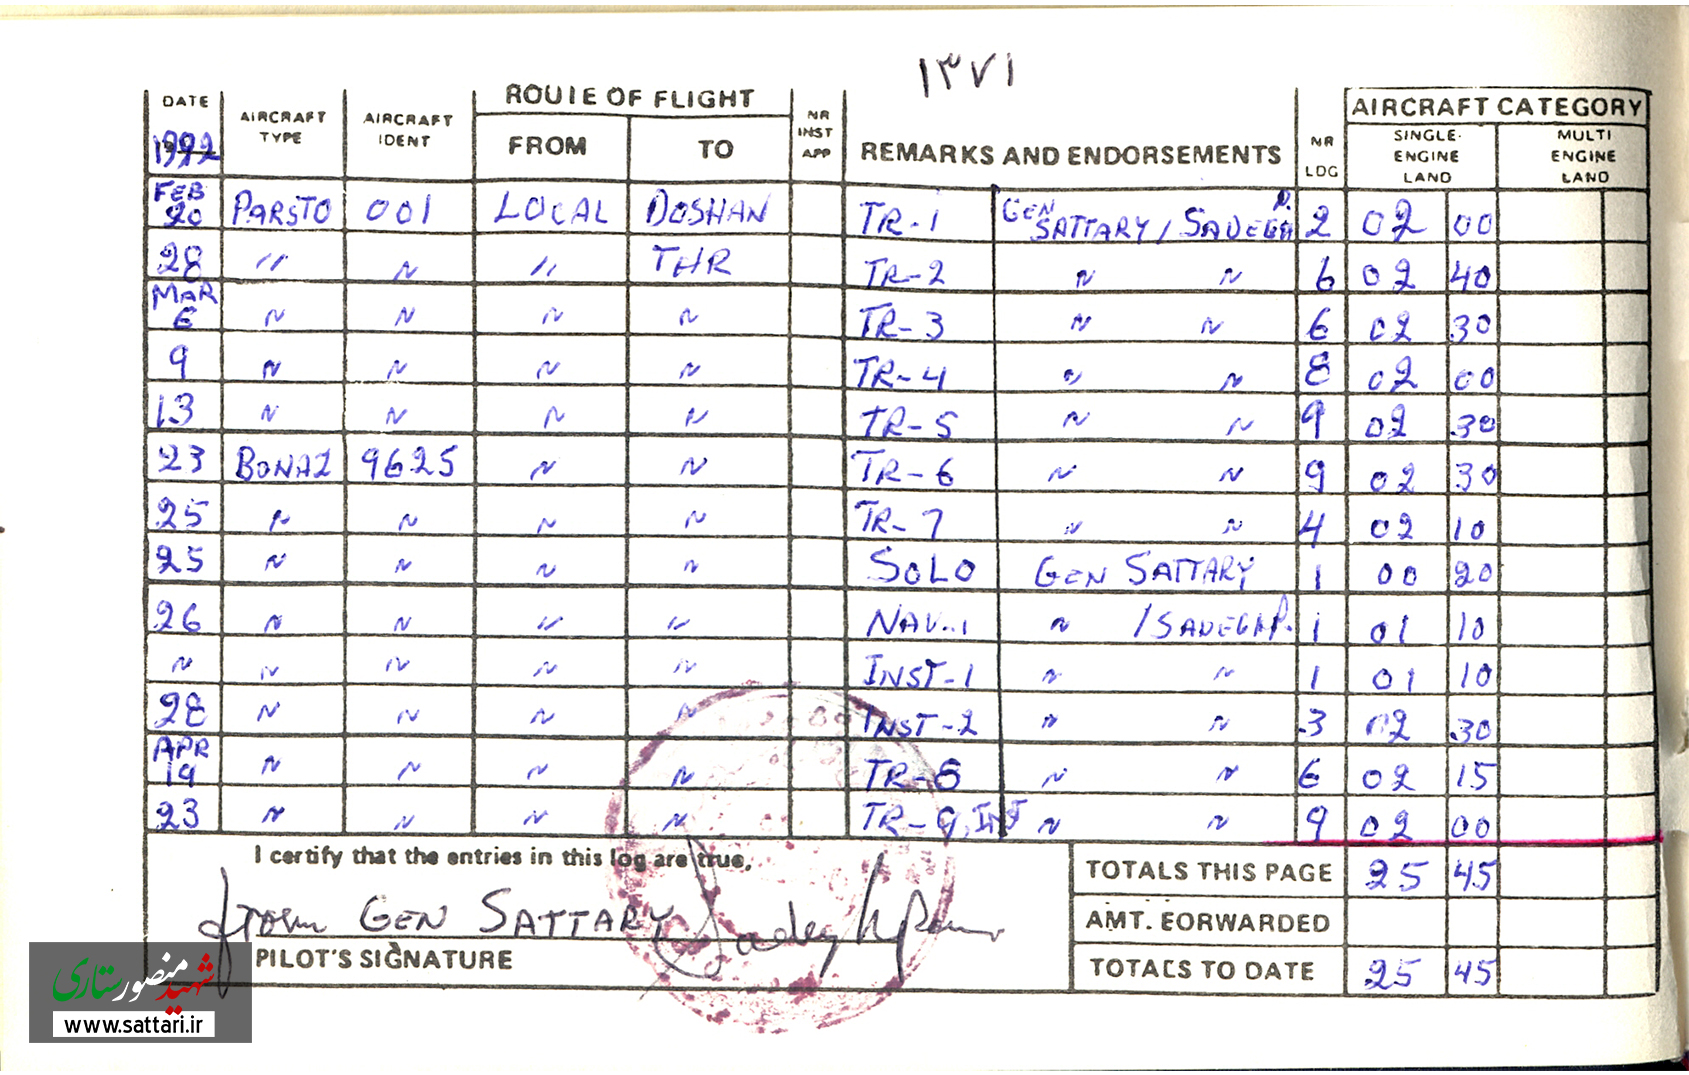 ۱۳۷۱
DATE AIRCRAFT TYPE AIRCRAFT IDENT ROUTE OF FLIGHT FROM TO NR INST APP REMARKS AND ENDORSEMENTS NR LDG AIRCRAFT CATEGORY SINGLE-ENGINE LAND MULTI ENGINE LAND
1992
FEB 20 PARSTO 001 LOCAL DOSHAN TR-1 GEN SATTARY / SADEGH P. 2 02 00
28 〃 〃 〃 THR TR-2 〃 〃 6 02 40
MAR 6 〃 〃 〃 〃 TR-3 〃 〃 6 02 30
9 〃 〃 〃 〃 TR-4 〃 〃 8 02 00
13 〃 〃 〃 〃 TR-5 〃 〃 9 02 30
23 BONAZ 9625 〃 〃 TR-6 〃 〃 9 02 30
25 〃 〃 〃 〃 TR-7 〃 〃 4 02 10
25 〃 〃 〃 〃 SOLO GEN SATTARY 1 00 20
26 〃 〃 〃 〃 NAV-1 〃 / SADEGH P. 1 01 10
〃 〃 〃 〃 〃 INST-1 〃 〃 1 01 10
28 〃 〃 〃 〃 INST-2 〃 〃 3 02 30
APR 19 〃 〃 〃 〃 TR-8 〃 〃 6 02 15
23 〃 〃 〃 〃 TR-9, INST 〃 〃 9 02 00
I certify that the entries in this log are true,
TOTALS THIS PAGE 25 45
GEN SATTARY
AMT. FORWARDED
PILOT'S SIGNATURE
TOTALS TO DATE 25 45
شهید منصور ستاری
www.sattari.ir